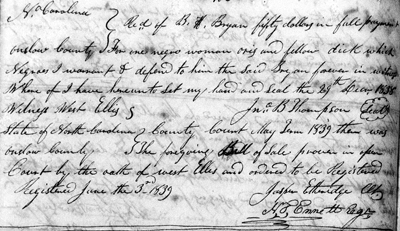 No Carolina } Recd of B. Bryan fifty dollars in full payment
onslow County } For one negro woman and fellow dick which
Negroes I warrant & defend to him the said Bryan forever in witness
Whereof I have hereunto set my hand and seal the 29th Decr 1838
Witness West Ellis } Jno. B Thompson (Seal)
State of North Carolina } County Court May Term 1839 then was
onslow County } The foregoing Bill of Sale proven in open
Court by the oath of west Ellis and ordered to be Registered
Registered June the 3rd 1839